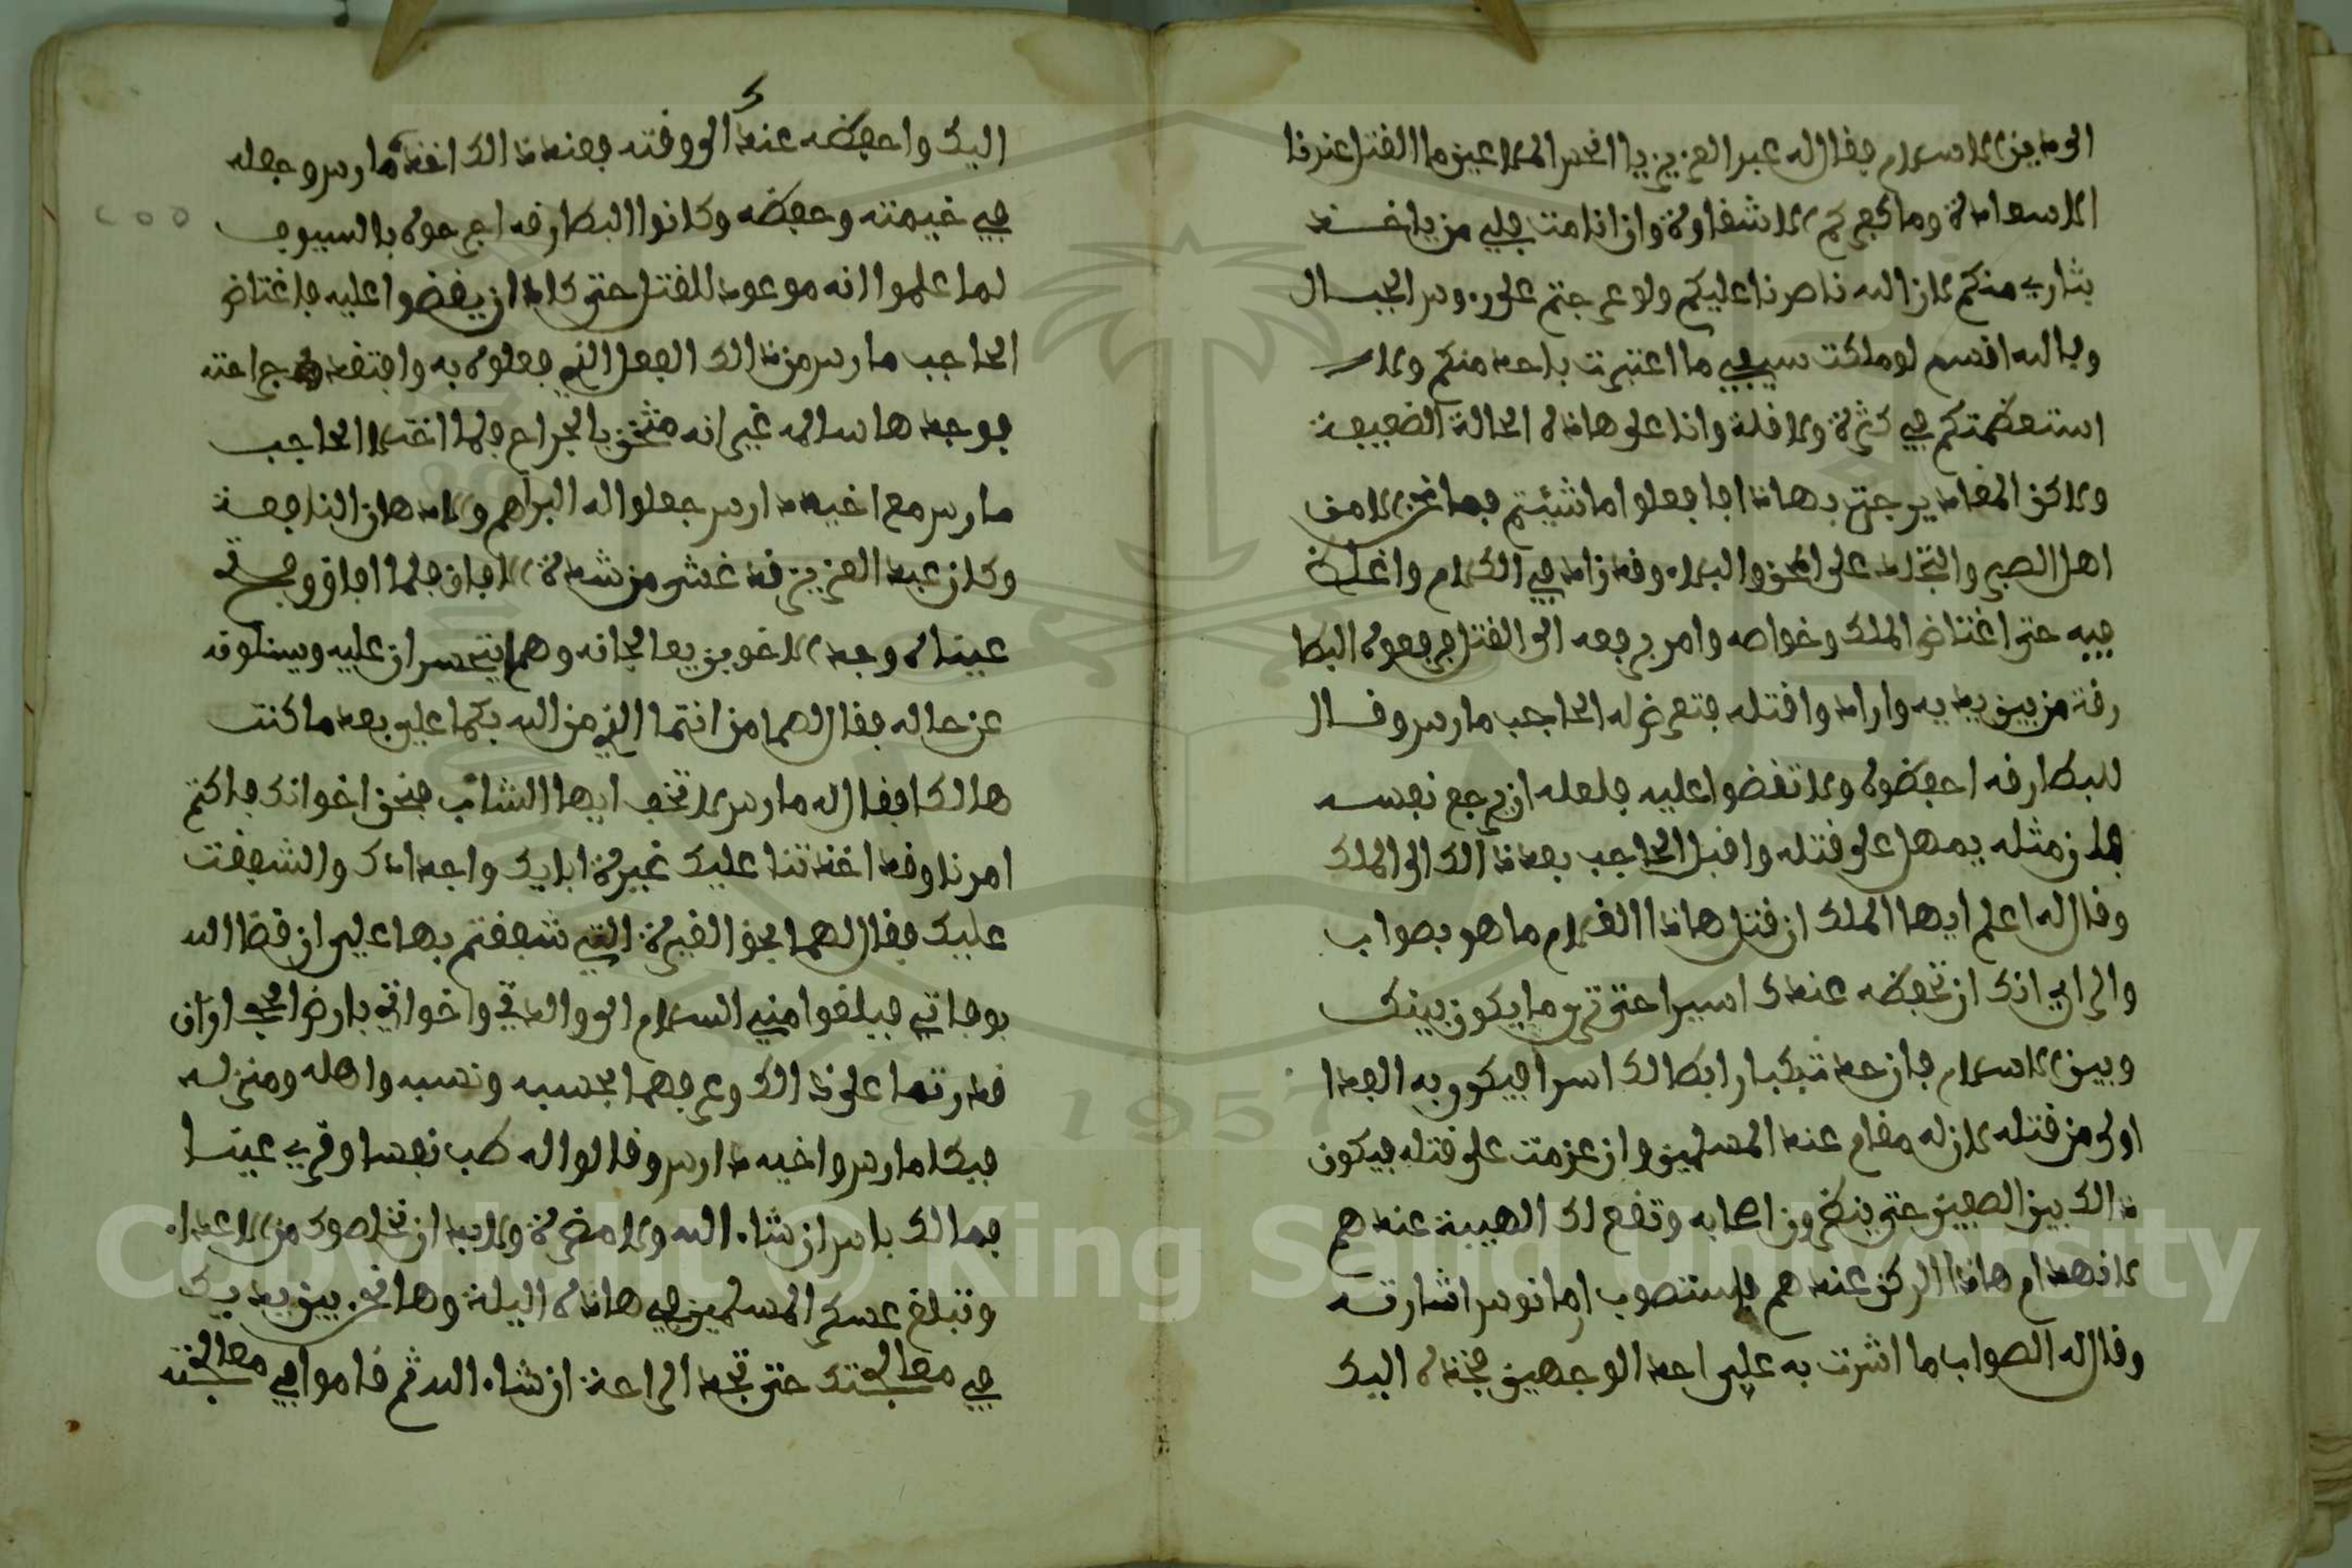 الى دين الاسلام فقال له عبد العزيز يا اخس الملاعين ما القتل عندنا
الا سعادة وما نجركم الا شقاوة وان انا مت فلي من ياخذ
بثاري منكم لان الله ناصرنا عليكم ولو عرجتم على رءوس الجبال
وبالله اقسم لو ملكت سيفي ما اعتبرت باحد منكم ولا
استعظمتكم في كثرة ولا قلة وانا على هاذه الحالة الضعيفة
ولاكن المقادير جرت بهاذا فافعلوا ما شئتم فما نحن الا من
اهل الصبر والتجلد على المحن والبلاء وقد زاد في الكلام واغلظ
فيه حتى اغتاض الملك وخواصه وامر برفعه الى القتل فرفعوه البطا
رقة من بين يديه وارادوا قتله فتعرض له الحاجب مارس وقال
للبطارقه احفظوه ولا تقضوا عليه فلعله ان يرجع نفسه
فان مثله يمهل على قتله واقبل الحاجب بعد ذالك الى الملك
وقال له اعلم ايها الملك ان قتل هاذا الغلام ما هو بصواب
والراي انك ان تحفظه عندك اسيرا حتى ترى ما يكون بينك
وبين الاسلام فان حد من كبار ابطالك اسرا فيكون به الفدا
اولى من قتله لان له مقام عند المسلمين وان عزمت على قتله فيكون
ذالك بين الصفين حتى ينكرون اصحابه وتقع لك الهيبة عندهم
لانهدام هاذا الركن عندهم فاستصوب ارمانوس اشارته
وقال له الصواب ما اشرت به علي احد الوجهين فخذه اليك
اليك واحفظه عندك الى وقته فعند ذالك اخذه مارس وجعله
في خيمته وحفظه وكانوا البطارقه اجرحوه بالسيوف
لما علموا انه موعود للقتل حتى كاد ان يقضوا عليه فاغتاض
الحاجب مارس من ذالك الفعل الذي فعلوه به وافتقد جراحته
فوجدها سالمه غير انه مثخن بالجراح فلما اختلا الحاجب
مارس مع اخيه دارس جعلوا له المراهم والادهان النافعة
وكان عبد العزيز قد غشي من شدة الافاق فلما افاق وفتح
عيناه وجد الاخوين يعالجانه وهما يتحسران عليه ويسئلونه
عن حاله فقال لهما من انتما الذي من الله بكما علي بعد ما كنت
هالكا فقال له مارس لا تخف ايها الشاب فنحن اخوانك فاكتم
امرنا وقد اخذتنا عليك غيرة اباءك واجدادك والشفقت
عليك فقال لهما بحق الغيرة التي شفقتم بها علي ان قضا الله
بوفاتي فبلغوا مني السلام الى والدتي واخواتي بارض الحجاز ان
قدرتما على ذالك وعرفهما بحسبه ونسبه واهله ومنزله
فبكا مارس واخيه دارس وقالوا له طب نفسا وقري عينا
فما لك باس ان شاء الله ولا مضرة ولا بد ان نخلصوك من الاعداء
وتبلغ عسكر المسلمين في هاذه اليلة وها نحن بين يديك
في معالجتك حتى تجد الراحة ان شاء الله ثم قاموا في معالجته